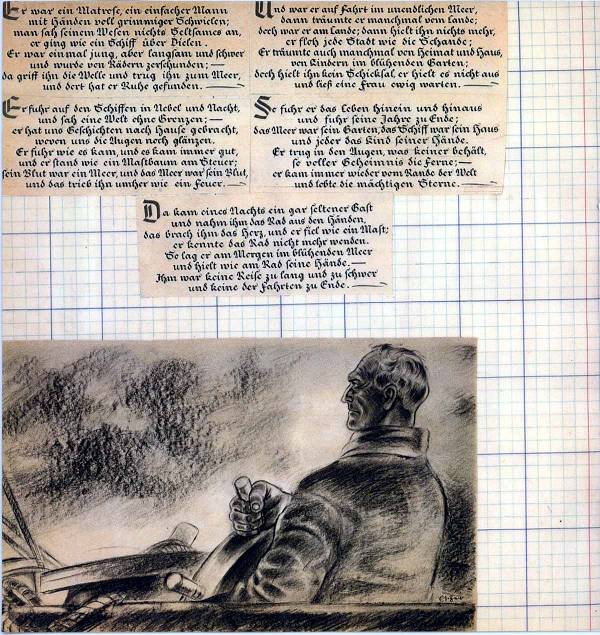 Er war ein Matrose, ein einfacher Mann
mit Händen voll grimmiger Schwielen;
man sah seinem Wesen nichts Seltsames an,
er ging wie ein Schiff über Dielen.
Er war einmal jung, aber langsam und schwer
und wurde von Rädern zerschunden; —
da griff ihn die Welle und trug ihn zum Meer,
und dort hat er Ruhe gefunden. —
Er fuhr auf den Schiffen in Nebel und Nacht,
und sah eine Welt ohne Grenzen; —
er hat uns Geschichten nach Hause gebracht,
wovon uns die Augen noch glänzen.
Er fuhr wie es kam, und es kam immer gut,
und er stand wie ein Mastbaum am Steuer;
sein Blut war ein Meer, und das Meer war sein Blut,
und das trieb ihn umher wie ein Feuer. —
Und war er auf Fahrt im unendlichen Meer,
dann träumte er manchmal vom Lande;
doch war er am Lande; dann hielt ihn nichts mehr,
er floh jede Stadt wie die Schande;
Er träumte auch manchmal von Heimat und Haus,
von Kindern im blühenden Garten;
doch hielt ihn kein Schicksal, er hielt es nicht aus
und ließ eine Frau ewig warten. —
So fuhr er das Leben hinein und hinaus
und fuhr seine Jahre zu Ende;
das Meer war sein Garten, das Schiff war sein Haus
und jeder das Kind seiner Hände.
Er trug in den Augen, was keiner behält,
so voller Geheimnis die Ferne; —
er kam immer wieder vom Rande der Welt
und lobte die mächtigen Sterne. —
Da kam eines Nachts ein gar seltener Gast
und nahm ihm das Rad aus den Händen,
das brach ihm das Herz, und er fiel wie ein Mast;
er konnte das Rad nicht mehr wenden.
So lag er am Morgen im blühenden Meer
und hielt wie am Rad seine Hände. —
Ihm war keine Reise zu lang und zu schwer
und keine der Fahrten zu Ende. —